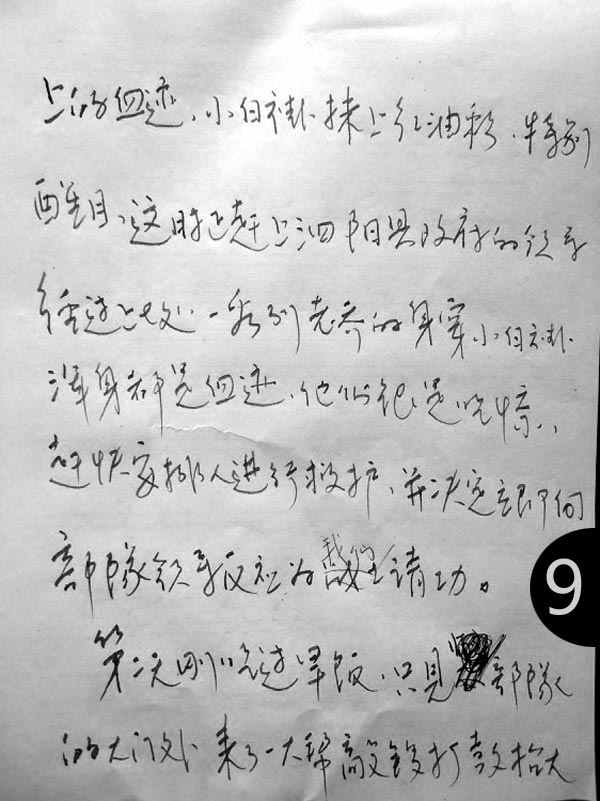 上的血迹、小白衬抹上红油彩、特别
醒目、这时正赶上泗阳县政府的领导
经过此处、一看到老乔的身穿小白衬
浑身都是血迹、他们很是吃惊、
赶快安排人进行救护、并决定立即向
部队领导反应为 请功。
第二天刚吃过早饭、只见 部队
的大门外、来了一大帮敲锣打鼓抬大
9